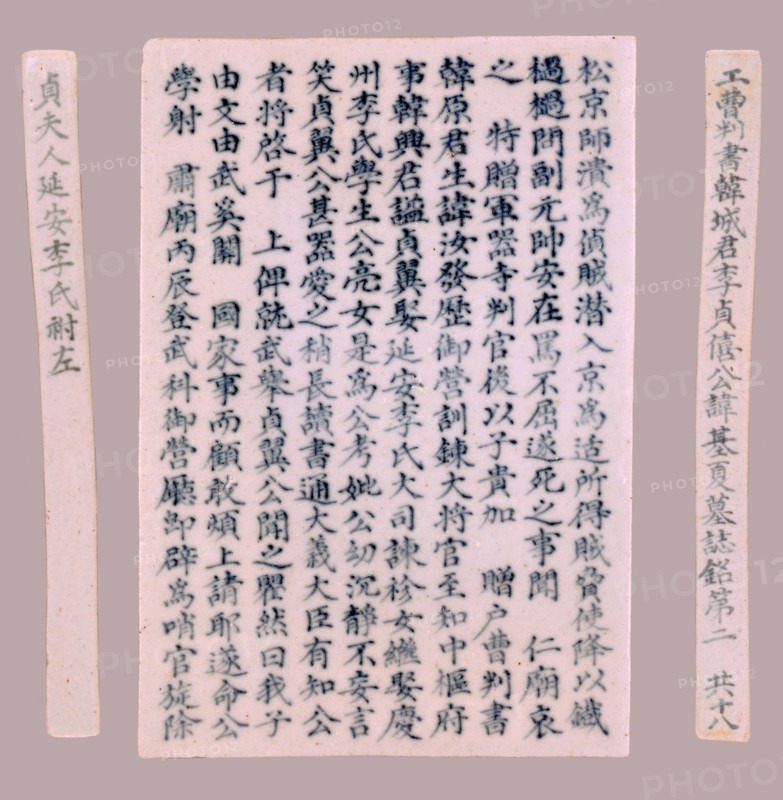 工曹判書韓城君李貞僖公諱基夏墓誌銘第二 共十八
松京師潰爲偵賊潛入京爲适所得賊脅使降以鐵
檛檛問副元帥安在罵不屈遂死之事聞 仁廟哀
之 特贈軍器寺判官後以子貴加 贈户曹判書
韓原君生諱汝發歷御營訓鍊大將官至知中樞府
事韓興君謚貞翼娶延安李氏大司諫袗女繼娶慶
州李氏學生公亮女是爲公考妣公幼沉靜不妄言
笑貞翼公甚器愛之稍長讀書通大義大臣有知公
者將啓于 上俾就武擧貞翼公聞之瞿然曰我子
由文由武奚關 國家事而顧敢煩上請耶遂命公
學射 肅廟丙辰登武科御營廳卽辟爲哨官旋除
貞夫人延安李氏祔左
PHOTO12